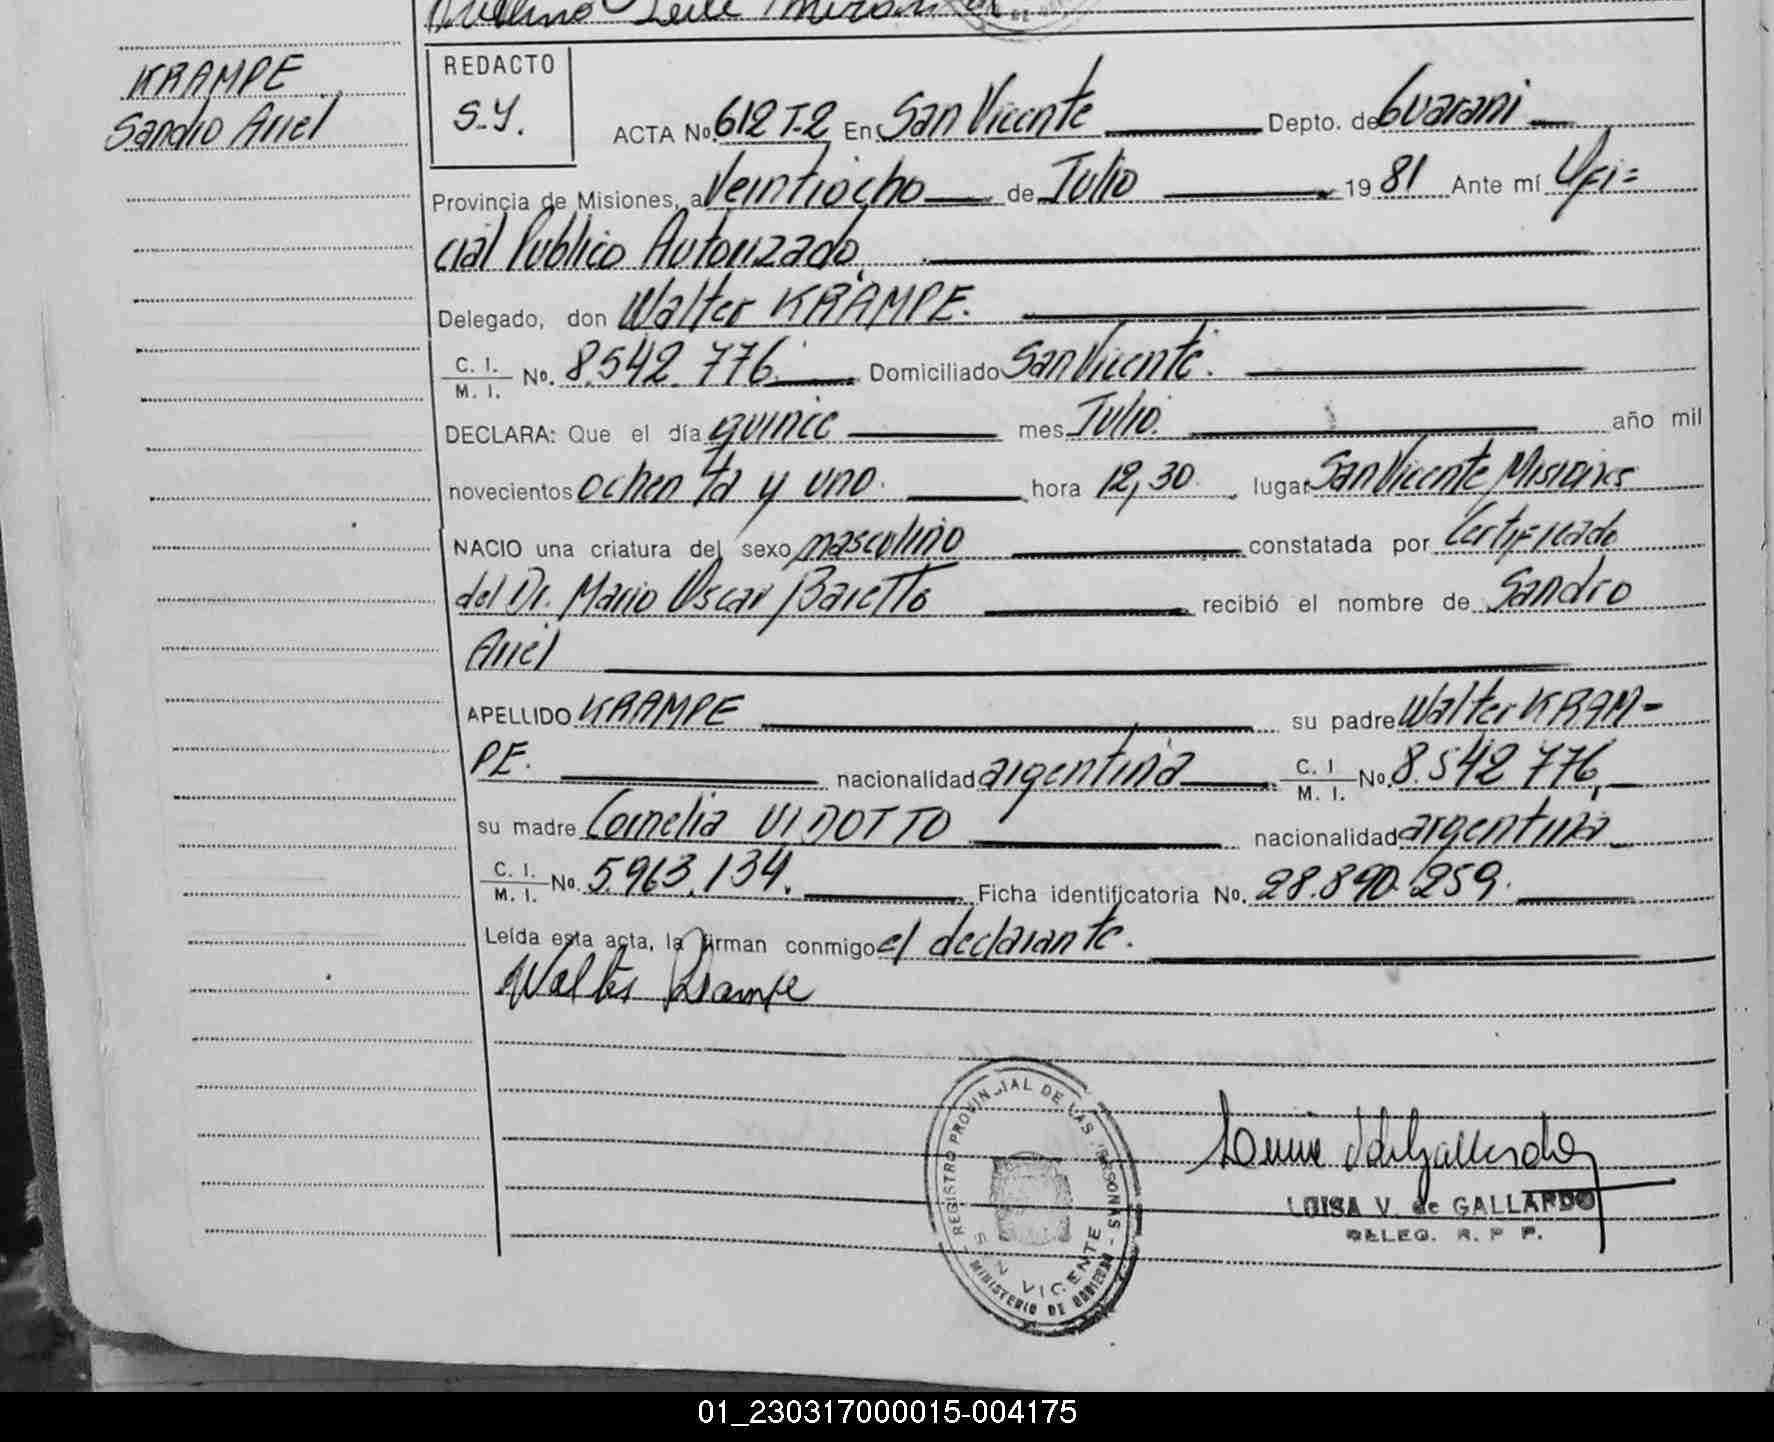 KRAMPE
Sandro Ariel
REDACTO
S.Y.
ACTA No. 612 T-2 En San Vicente Depto. de Guarani
Provincia de Misiones, a Veintiocho de Julio 1981 Ante mí Ofi=
cial Publico Autorizado,
Delegado, don Walter KRAMPE.
C. I.
M. I. No. 8.542.776. Domiciliado San Vicente.
DECLARA: Que el día quince mes Julio. año mil
novecientos ochenta y uno. hora 12,30. lugar San Vicente Misiones
NACIO una criatura del sexo masculino constatada por Certificado
del Dr. Mario Oscar Baretto recibió el nombre de Sandro
Ariel
APELLIDO KRAMPE su padre Walter KRAM-
PE. nacionalidad argentina C. I
M. I. No. 8.542.776,
su madre Cornelia VIDOTTO nacionalidad argentina
C. I.
M. I. No. 5.963.134. Ficha identificatoria No. 28.890.259.
Leída esta acta, la firman conmigo el declarante.
Walter Krampe
REGISTRO PROVINCIAL DE LAS PERSONAS - MINISTERIO DE GOBIERNO
SAN VICENTE
LUISA V. de GALLARDO
DELEG. R. P. P.
01_230317000015-004175